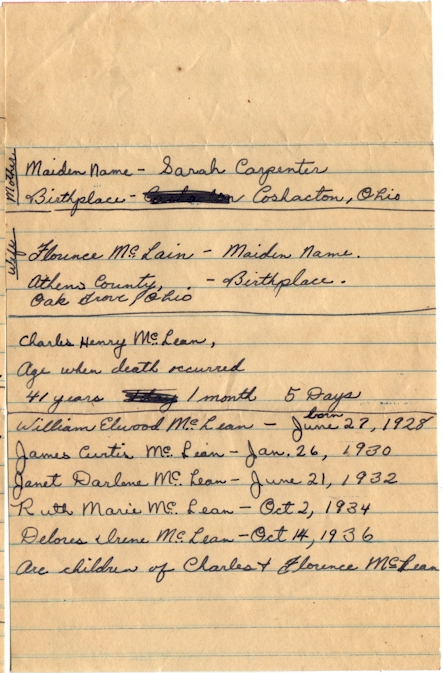 Mother
Maiden Name - Sarah Carpenter
Birthplace - Coshacton, Ohio
Wife
Florence McLain - Maiden Name.
Athens County, - Birthplace.
Oak Grove, Ohio
Charles Henry McLean,
Age when death occurred
41 years 1 month 5 Days
born
William Elwood McLean - June 27, 1928
James Curtis McLean - Jan. 26, 1930
Janet Darlene McLean - June 21, 1932
Ruth Marie McLean - Oct 2, 1934
Delores Irene McLean - Oct 14, 1936
Are children of Charles & Florence McLean